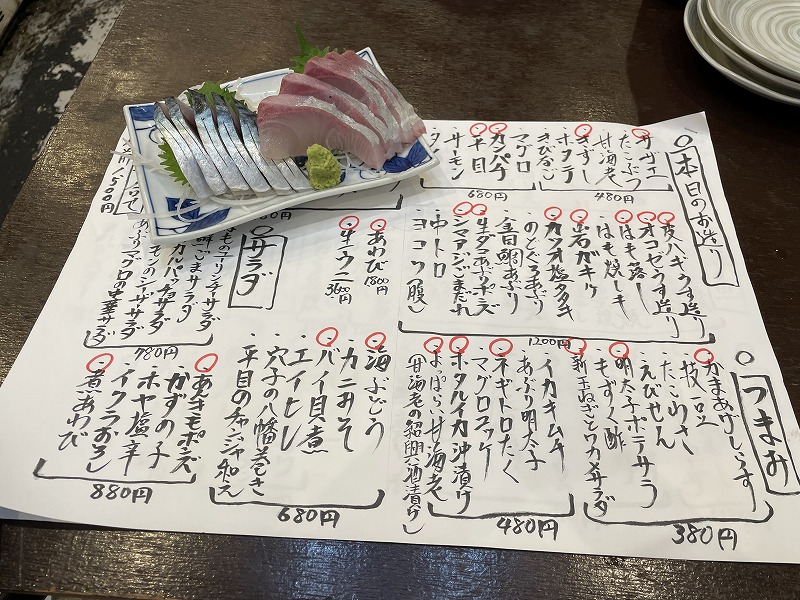 本日のお造り
サヴェ
たこぶつ
甘海老
きずし
ホタテ
きびなご
480円
マグロ
カンパチ
平目
サーモン
680円
皮ハギうす造り
オコゼうす造り
はも落し
はも焼しモ
岩ガキ
カツオ塩タタキ
のどぐろあぶり
金目鯛あぶり
生ダコあぶりポンズ
シマアジごまだれ
中トロ
ヨコワ(腹)
1200円
あわび
1800円
生ウニ
3600円
サラダ
780円
1500円
つまみ
かまあげしらす
枝豆
たこわさ
えびせん
明太子ポテサラ
もずく酢
新玉ねぎとワカメサラダ
380円
イカキムチ
あぶり明太子
ネギトロたく
マグロヌッケ
ホタルイカ沖漬け
よっぱらい甘海老
(甘海老の紹興酒漬け)
480円
海ぶどう
カニみそ
バイ貝煮
エイヒレ
穴子の八幡巻き
平目のチャンジャ和え
680円
あんきもポンズ
かずの子
ホヤ塩辛
イクラおろし
煮あわび
880円